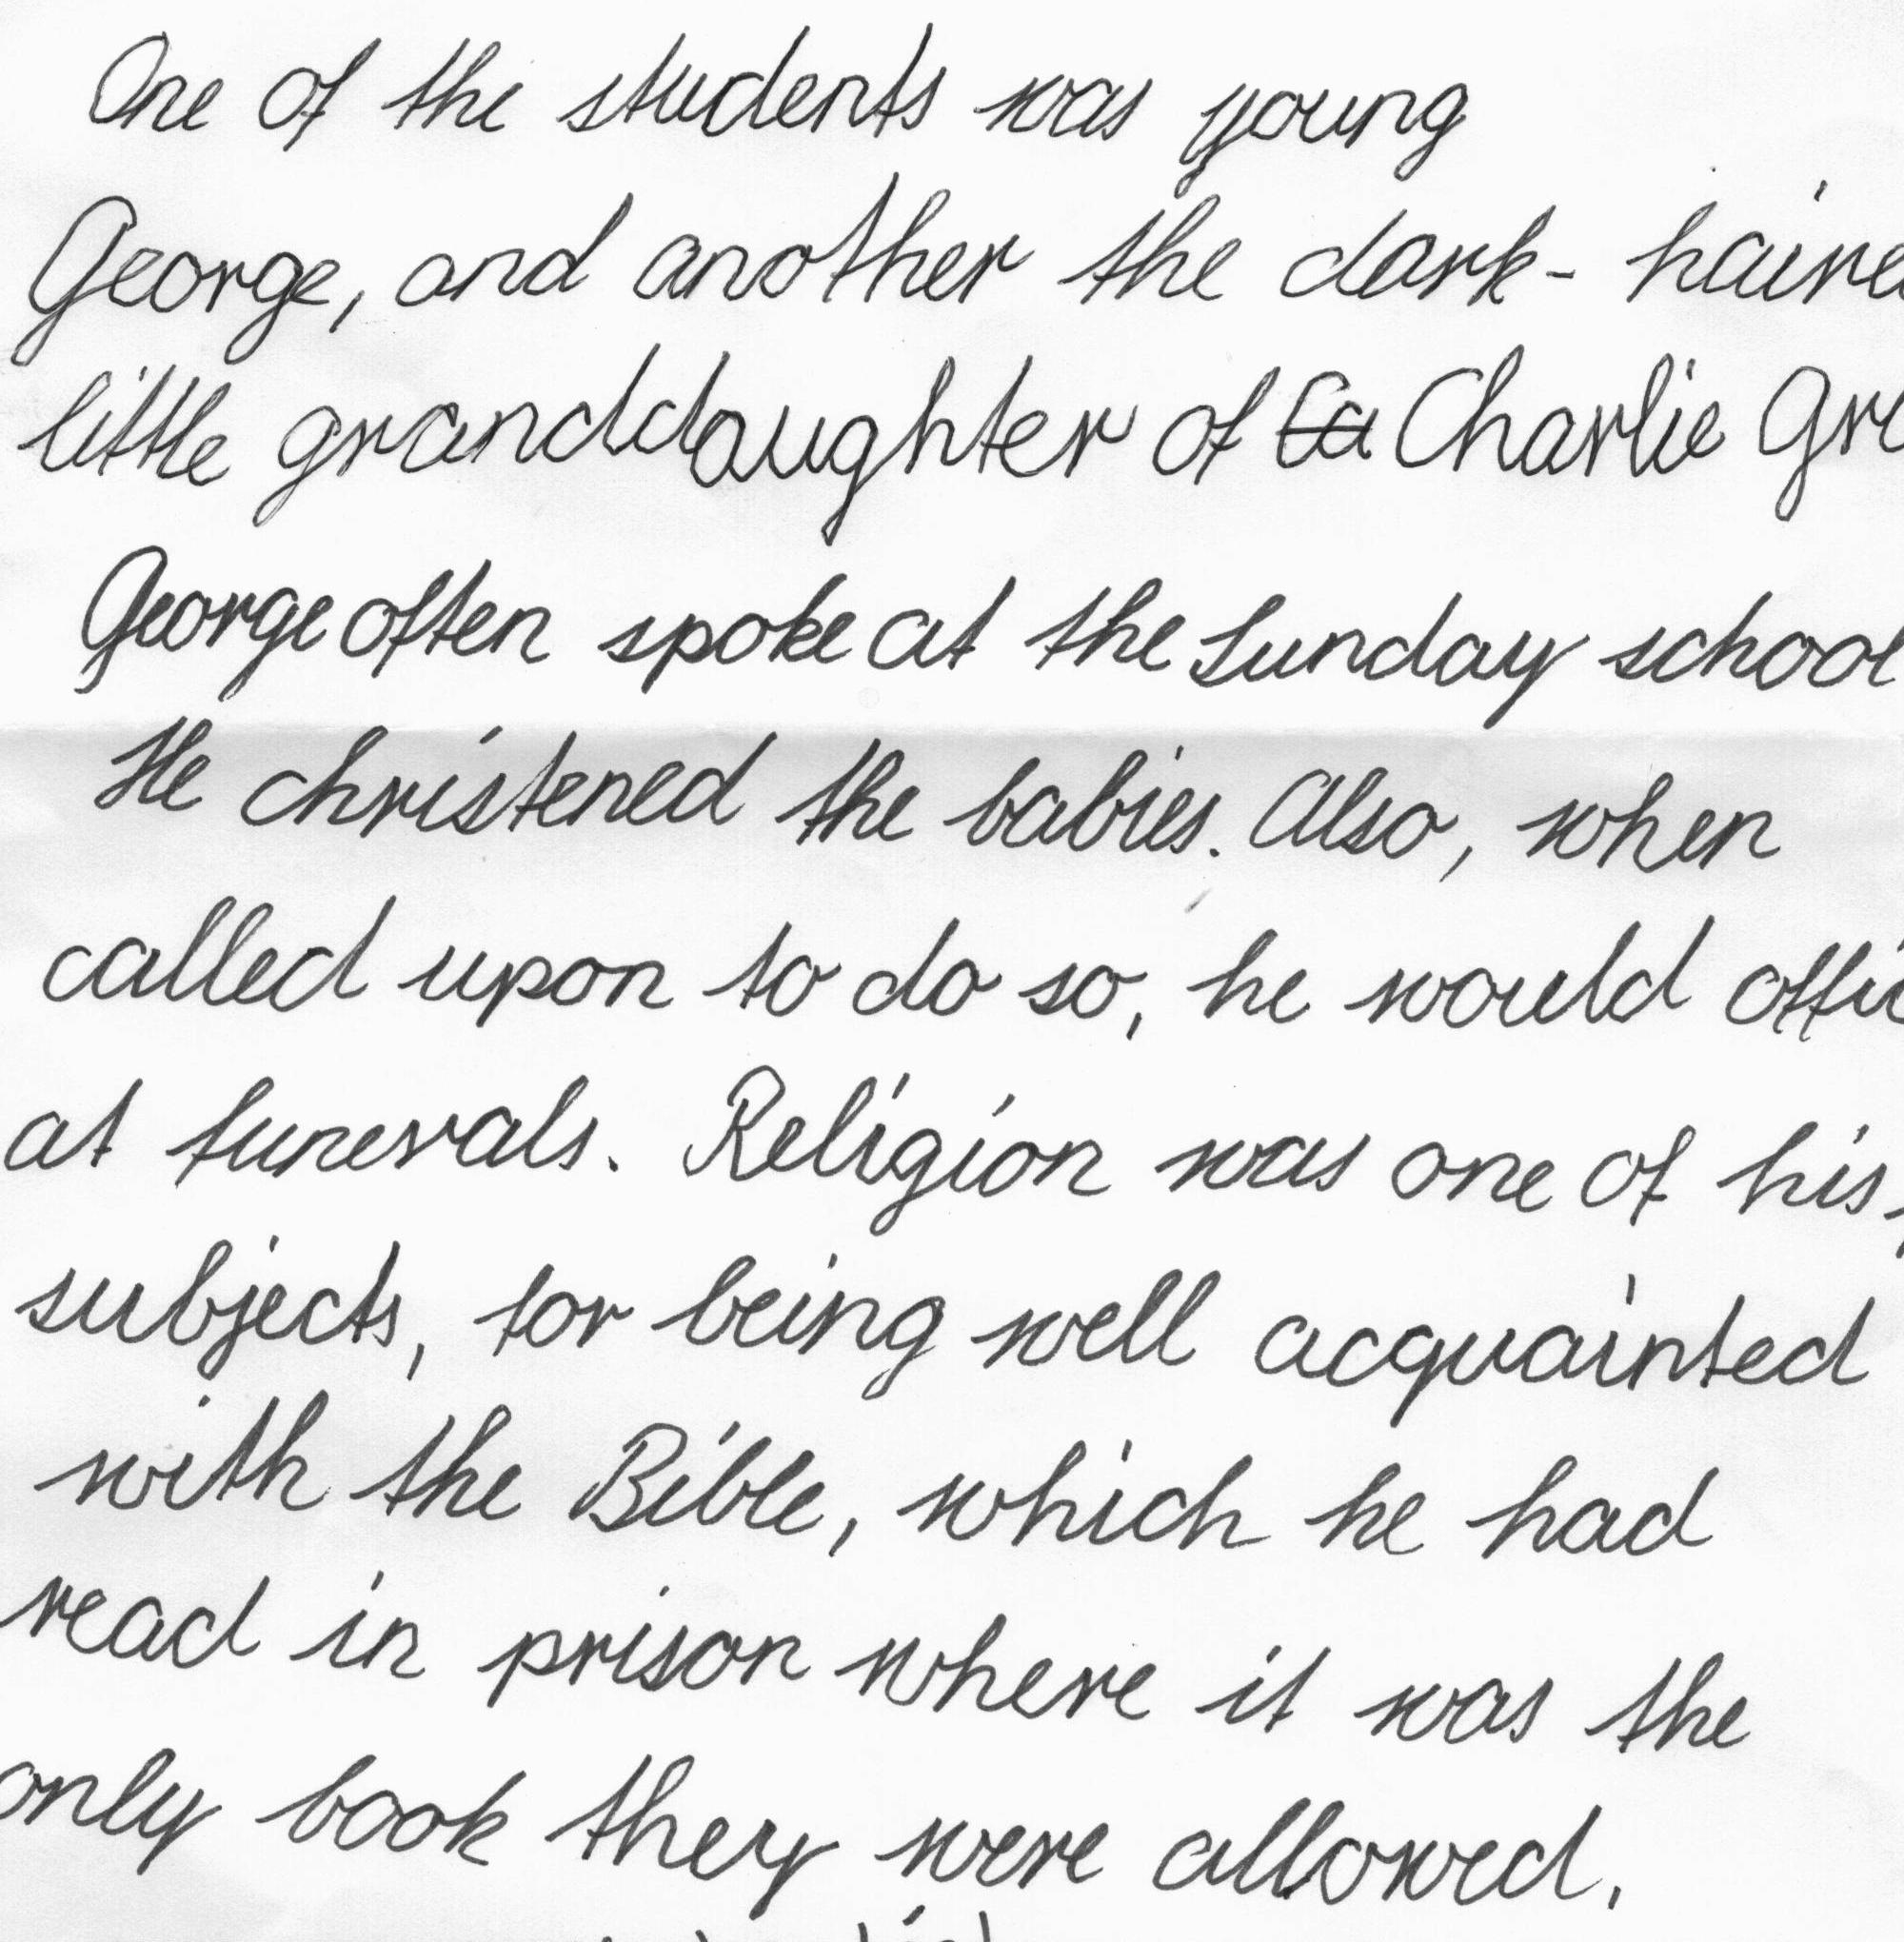 One of the students was young
George, and another the dark- haire
little granddaughter of Ca Charlie Gr
George often spoke at the Sunday school
He christened the babies. Also, when
called upon to do so, he would offic
at funerals. Religion was one of his
subjects, for being well acquainted
with the Bible, which he had
read in prison where it was the
only book they were allowed.